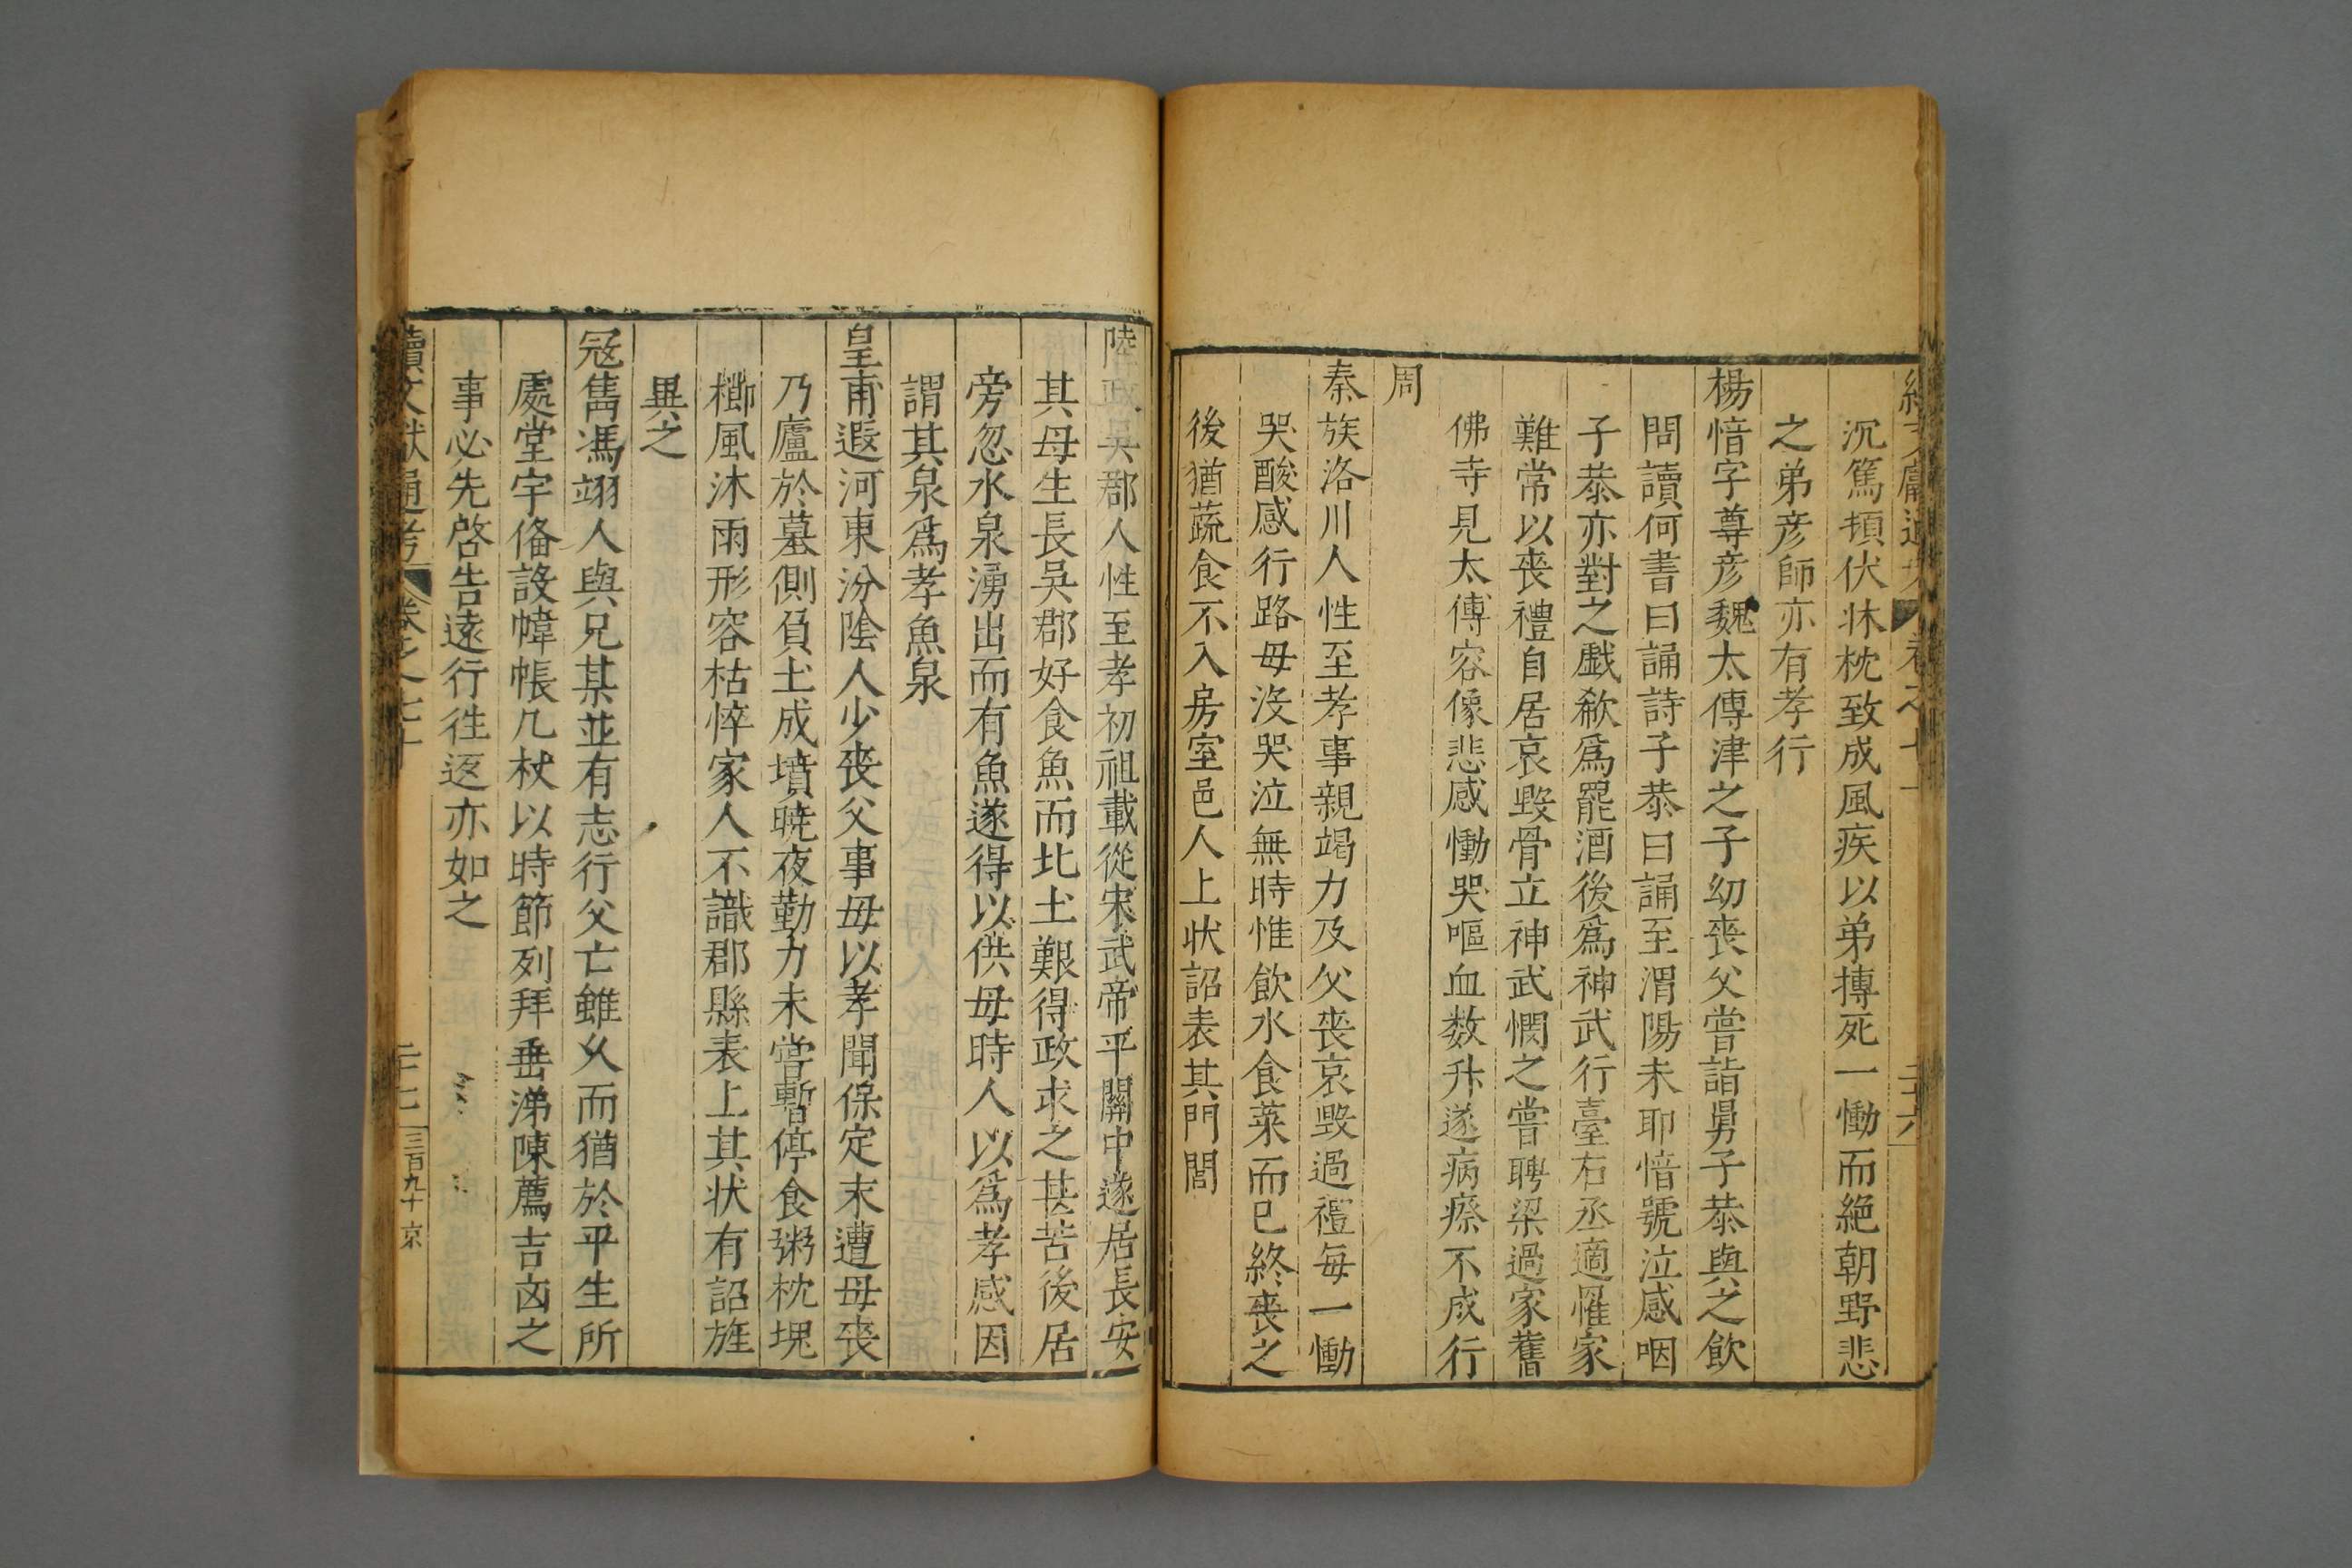 續文獻通考 卷之七十 二十六
沉篤頓伏牀枕致成風疾以弟摶死一慟而絕朝野悲
之弟彥師亦有孝行
楊愔字尊彥魏太傅津之子幼喪父嘗詣舅子恭與之飲
問讀何書曰誦詩子恭曰誦至渭陽未耶愔號泣感咽
子恭亦對之戲欷爲罷酒後爲神武行臺右丞適罹家
難常以喪禮自居哀毀骨立神武憫之嘗聘梁過家舊
佛寺見太傅容像悲感慟哭嘔血数升遂病瘵不成行
周
秦族洛川人性至孝事親竭力及父喪哀毀過禮每一慟
哭酸感行路母沒哭泣無時惟飲水食菜而已終喪之
後猶蔬食不入房室邑人上狀詔表其門閭
陸政吳郡人性至孝初祖載從宋武帝平關中遂居長安
其母生長吳郡好食魚而北土艱得政求之甚苦後居
旁忽水泉湧出而有魚遂得以供母時人以爲孝感因
謂其泉爲孝魚泉
皇甫遐河東汾陰人少喪父事母以孝聞保定末遭母喪
乃廬於墓側負土成墳曉夜勤力未嘗暫停食粥枕塊
櫛風沐雨形容枯悴家人不識郡縣表上其狀有詔旌
異之
冦雋馮翊人與兄某並有志行父亡雖乆而猶於平生所
處堂宇俻設幃帳几杖以時節列拜垂涕陳薦吉凶之
事必先啓告遠行徃返亦如之
續文獻通考 卷之七十 二十七 三百九十 京